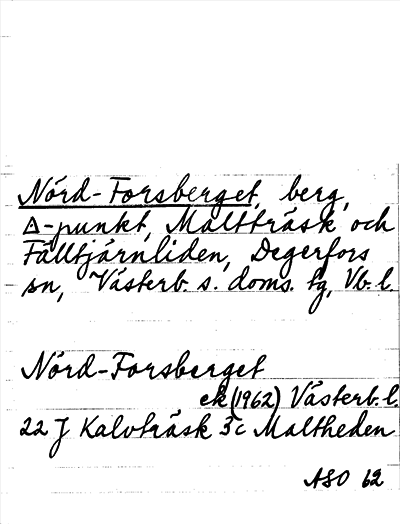 Nórd-Forsberget, berg,
Δ-punkt, Maltträsk och
Fälltjärnliden, Degerfors
sn, Västerb. s. doms. tg, Vb. l.
Nórd-Forsberget
ek (1962) Västerb. l.
22 J Kalvträsk 3c Maltheden
ASO 62